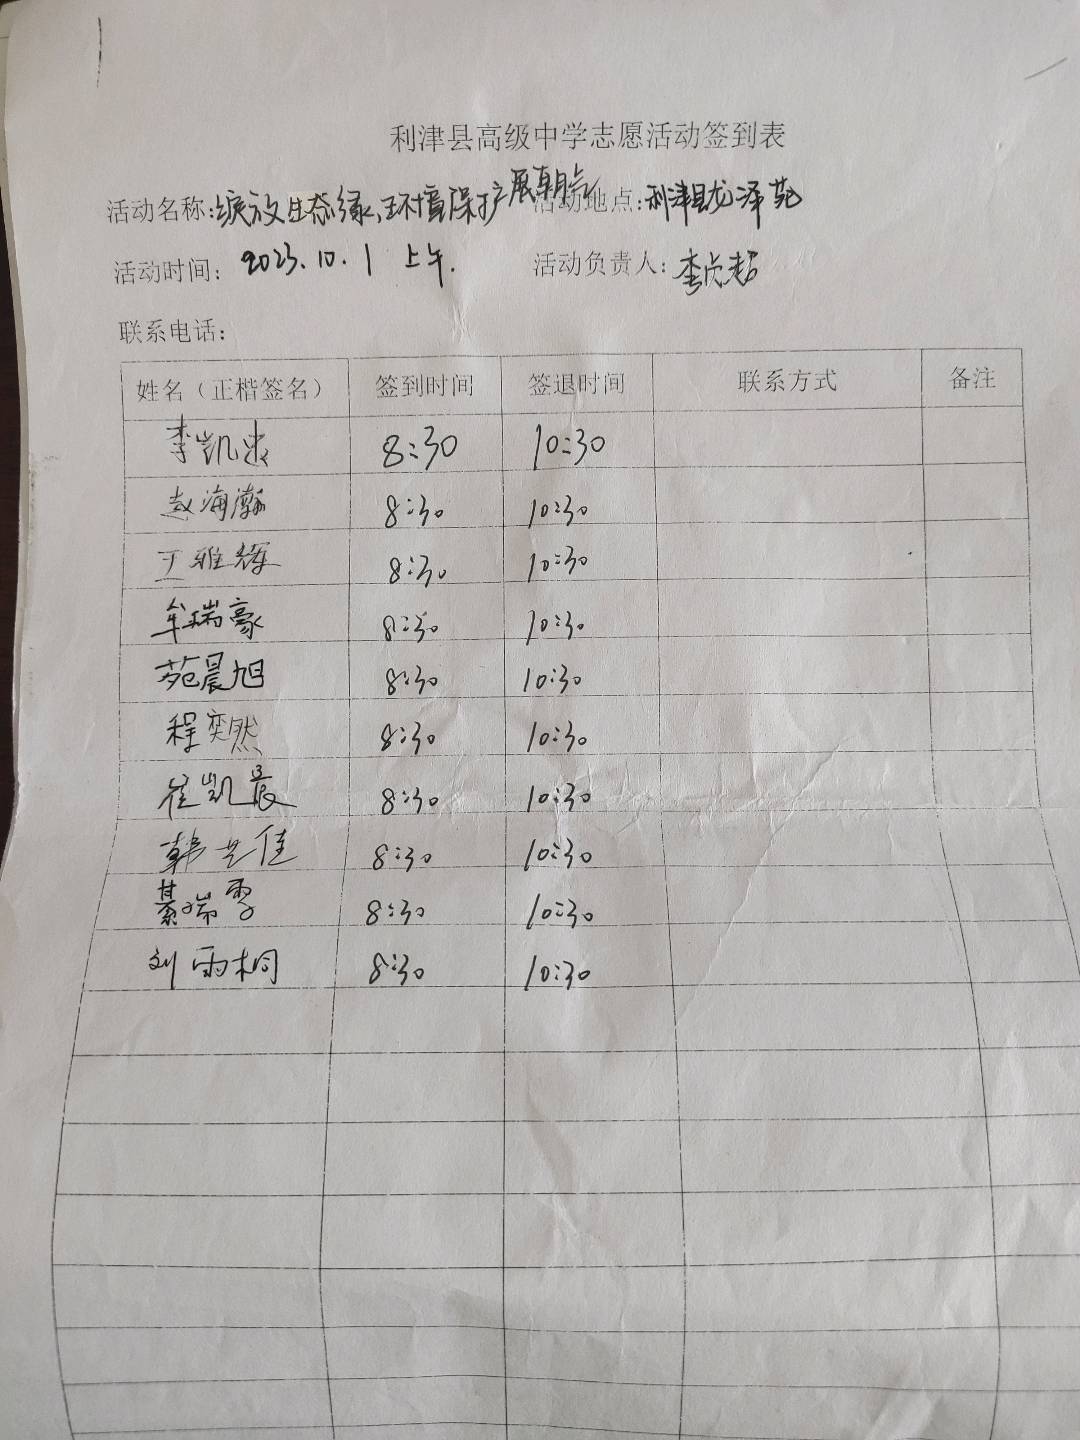 利津县高级中学志愿活动签到表
活动名称:绽放生态绿,环境保护展朝气 活动地点:利津县龙泽苑
活动时间: 2023.10.1 上午. 活动负责人:李贞超
联系电话:
姓名（正楷签名） 签到时间 签退时间 联系方式 备注
李凯 8:30 10:30
赵海瀚 8:30 10:30
王雅辉 8:30 10:30
牟瑞豪 8:30 10:30
苑晨旭 8:30 10:30
程奕然 8:30 10:30
崔凯晨 8:30 10:30
韩艺佳 8:30 10:30
綦瑞雪 8:30 10:30
刘雨桐 8:30 10:30